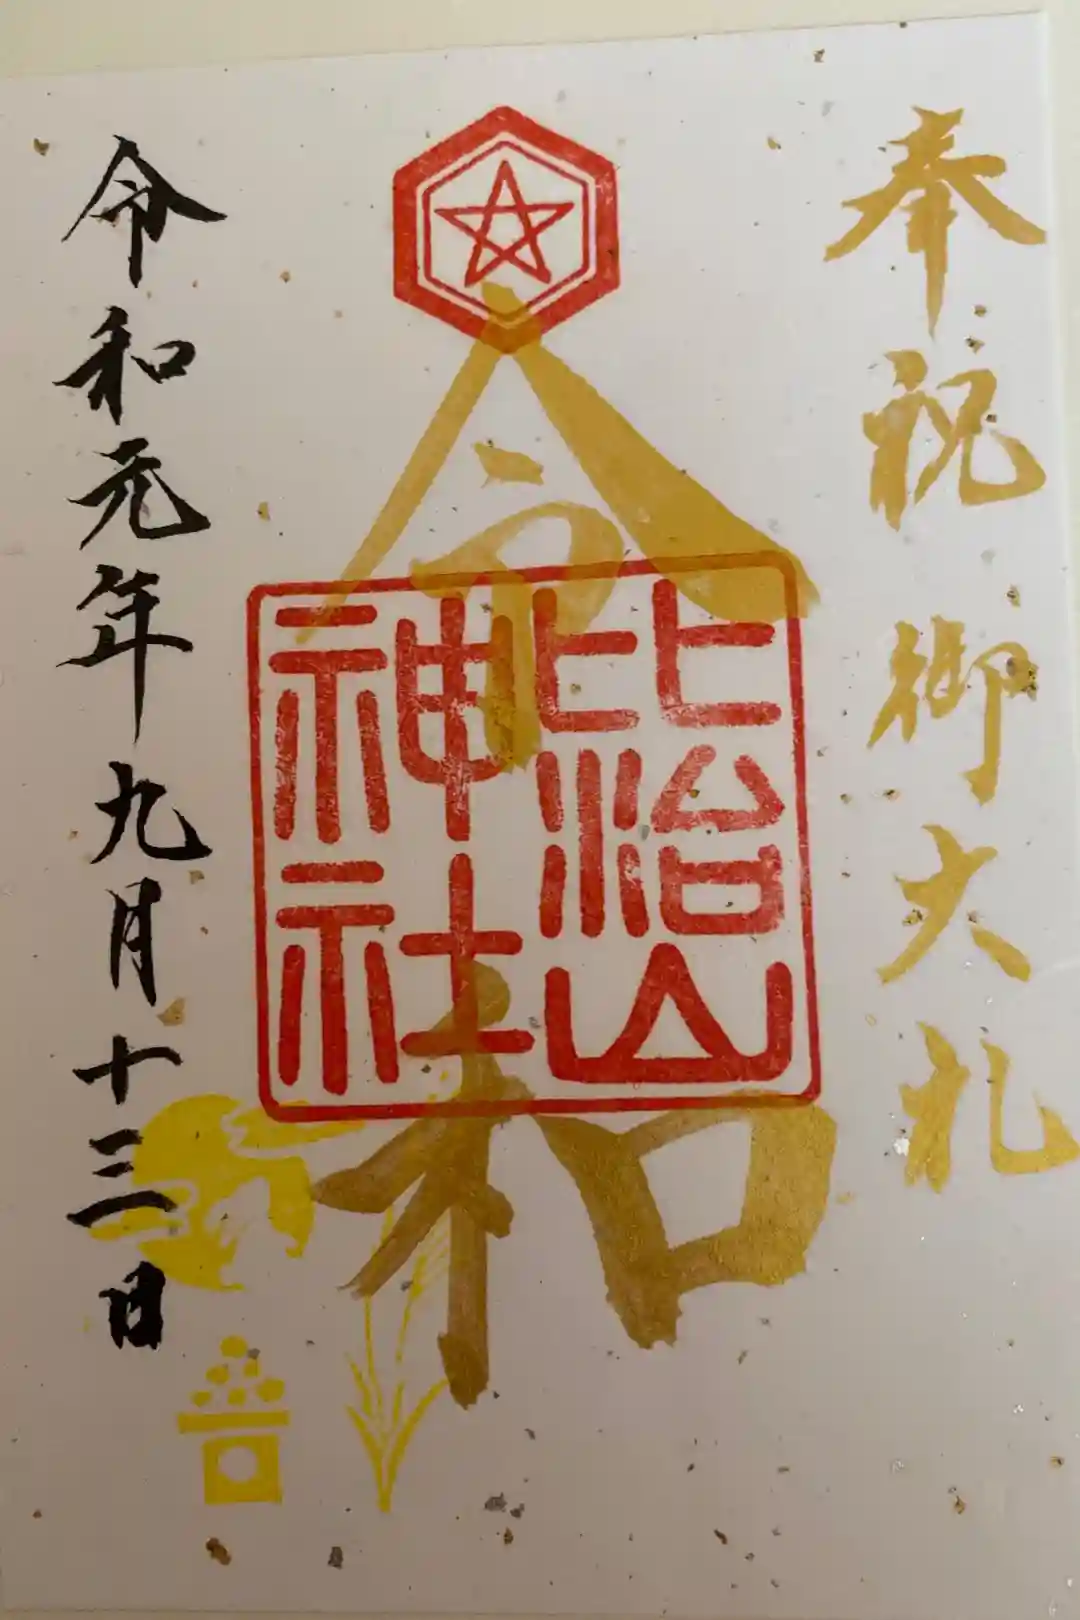 奉祝御大礼
令和
比治山
神社
令和元年九月十三日